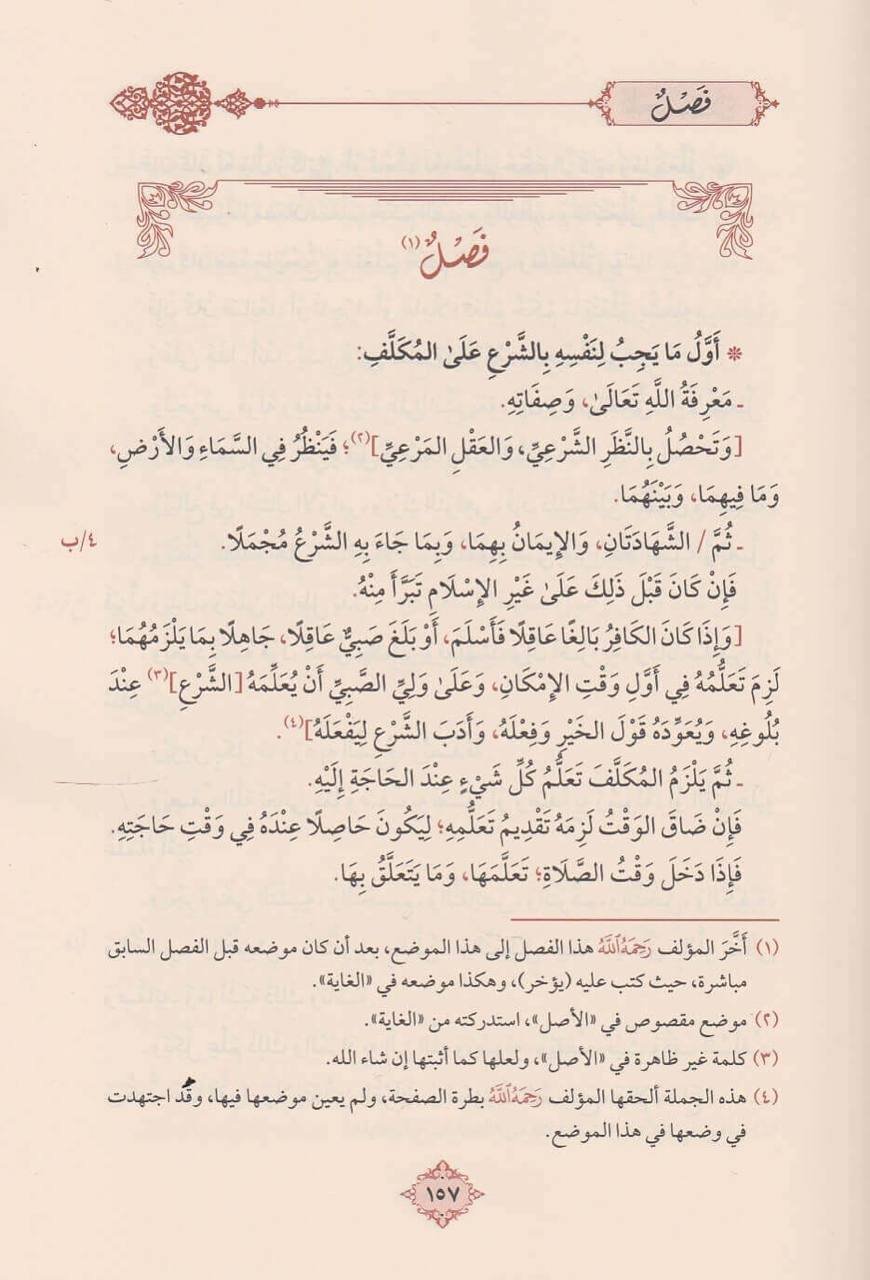 فَصْلٌ
فَصْلٌ (١)
* أَوَّلُ مَا يَجِبُ لِنَفْسِهِ بِالشَّرْعِ عَلَى المُكَلَّفِ:
ـ مَعْرِفَةُ اللَّهِ تَعَالَى، وَصِفَاتِهِ.
[وَتَحْصُلُ بِالنَّظَرِ الشَّرْعِيِّ، وَالعَقْلِ المَرْعِيِّ](٢)؛ فَيَنْظُرُ فِي السَّمَاءِ وَالأَرْضِ،
وَمَا فِيهِمَا، وَبَيْنَهُمَا.
ـ ثُمَّ / الشَّهَادَتَانِ، وَالإِيمَانُ بِهِمَا، وَبِمَا جَاءَ بِهِ الشَّرْعُ مُجْمَلًا. ٤/ب
فَإِنْ كَانَ قَبْلَ ذَلِكَ عَلَى غَيْرِ الإِسْلَامِ تَبَرَّأَ مِنْهُ.
[وَإِذَا كَانَ الكَافِرُ بَالِغًا عَاقِلًا فَأَسْلَمَ، أَوْ بَلَغَ صَبِيٌّ عَاقِلًا، جَاهِلًا بِمَا يَلْزَمُهُمَا؛
لَزِمَ تَعَلُّمُهُ فِي أَوَّلِ وَقْتِ الإِمْكَانِ، وَعَلَى وَلِيِّ الصَّبِيِّ أَنْ يُعَلِّمَهُ [الشَّرْعِ](٣) عِنْدَ
بُلُوغِهِ، وَيُعَوِّدَهُ قَوْلَ الخَيْرِ وَفِعْلَهُ، وَأَدَبَ الشَّرْعِ لِيَفْعَلَهُ](٤).
ـ ثُمَّ يَلْزَمُ المُكَلَّفَ تَعَلُّمُ كُلِّ شَيْءٍ عِنْدَ الحَاجَةِ إِلَيْهِ.
فَإِنْ ضَاقَ الوَقْتُ لَزِمَهُ تَقْدِيمُ تَعَلُّمِهِ؛ لِيَكُونَ حَاصِلًا عِنْدَهُ فِي وَقْتِ حَاجَتِهِ.
فَإِذَا دَخَلَ وَقْتُ الصَّلَاةِ؛ تَعَلَّمَهَا، وَمَا يَتَعَلَّقُ بِهَا.
(١) أَخَّرَ المؤلف رَحِمَهُ ٱللَّهُ هذا الفصل إلى هذا الموضع، بعد أن كان موضعه قبل الفصل السابق
مباشرة، حيث كتب عليه (يؤخر)، وهكذا موضعه في «الغاية».
(٢) موضع مقصوص في «الأصل»، استدركته من «الغاية».
(٣) كلمة غير ظاهرة في «الأصل»، ولعلها كما أثبتها إن شاء الله.
(٤) هذه الجملة ألحقها المؤلف رَحِمَهُ ٱللَّهُ بطرة الصفحة، ولم يعين موضعها فيها، وقد اجتهدت
في وضعها في هذا الموضع.
١٥٧